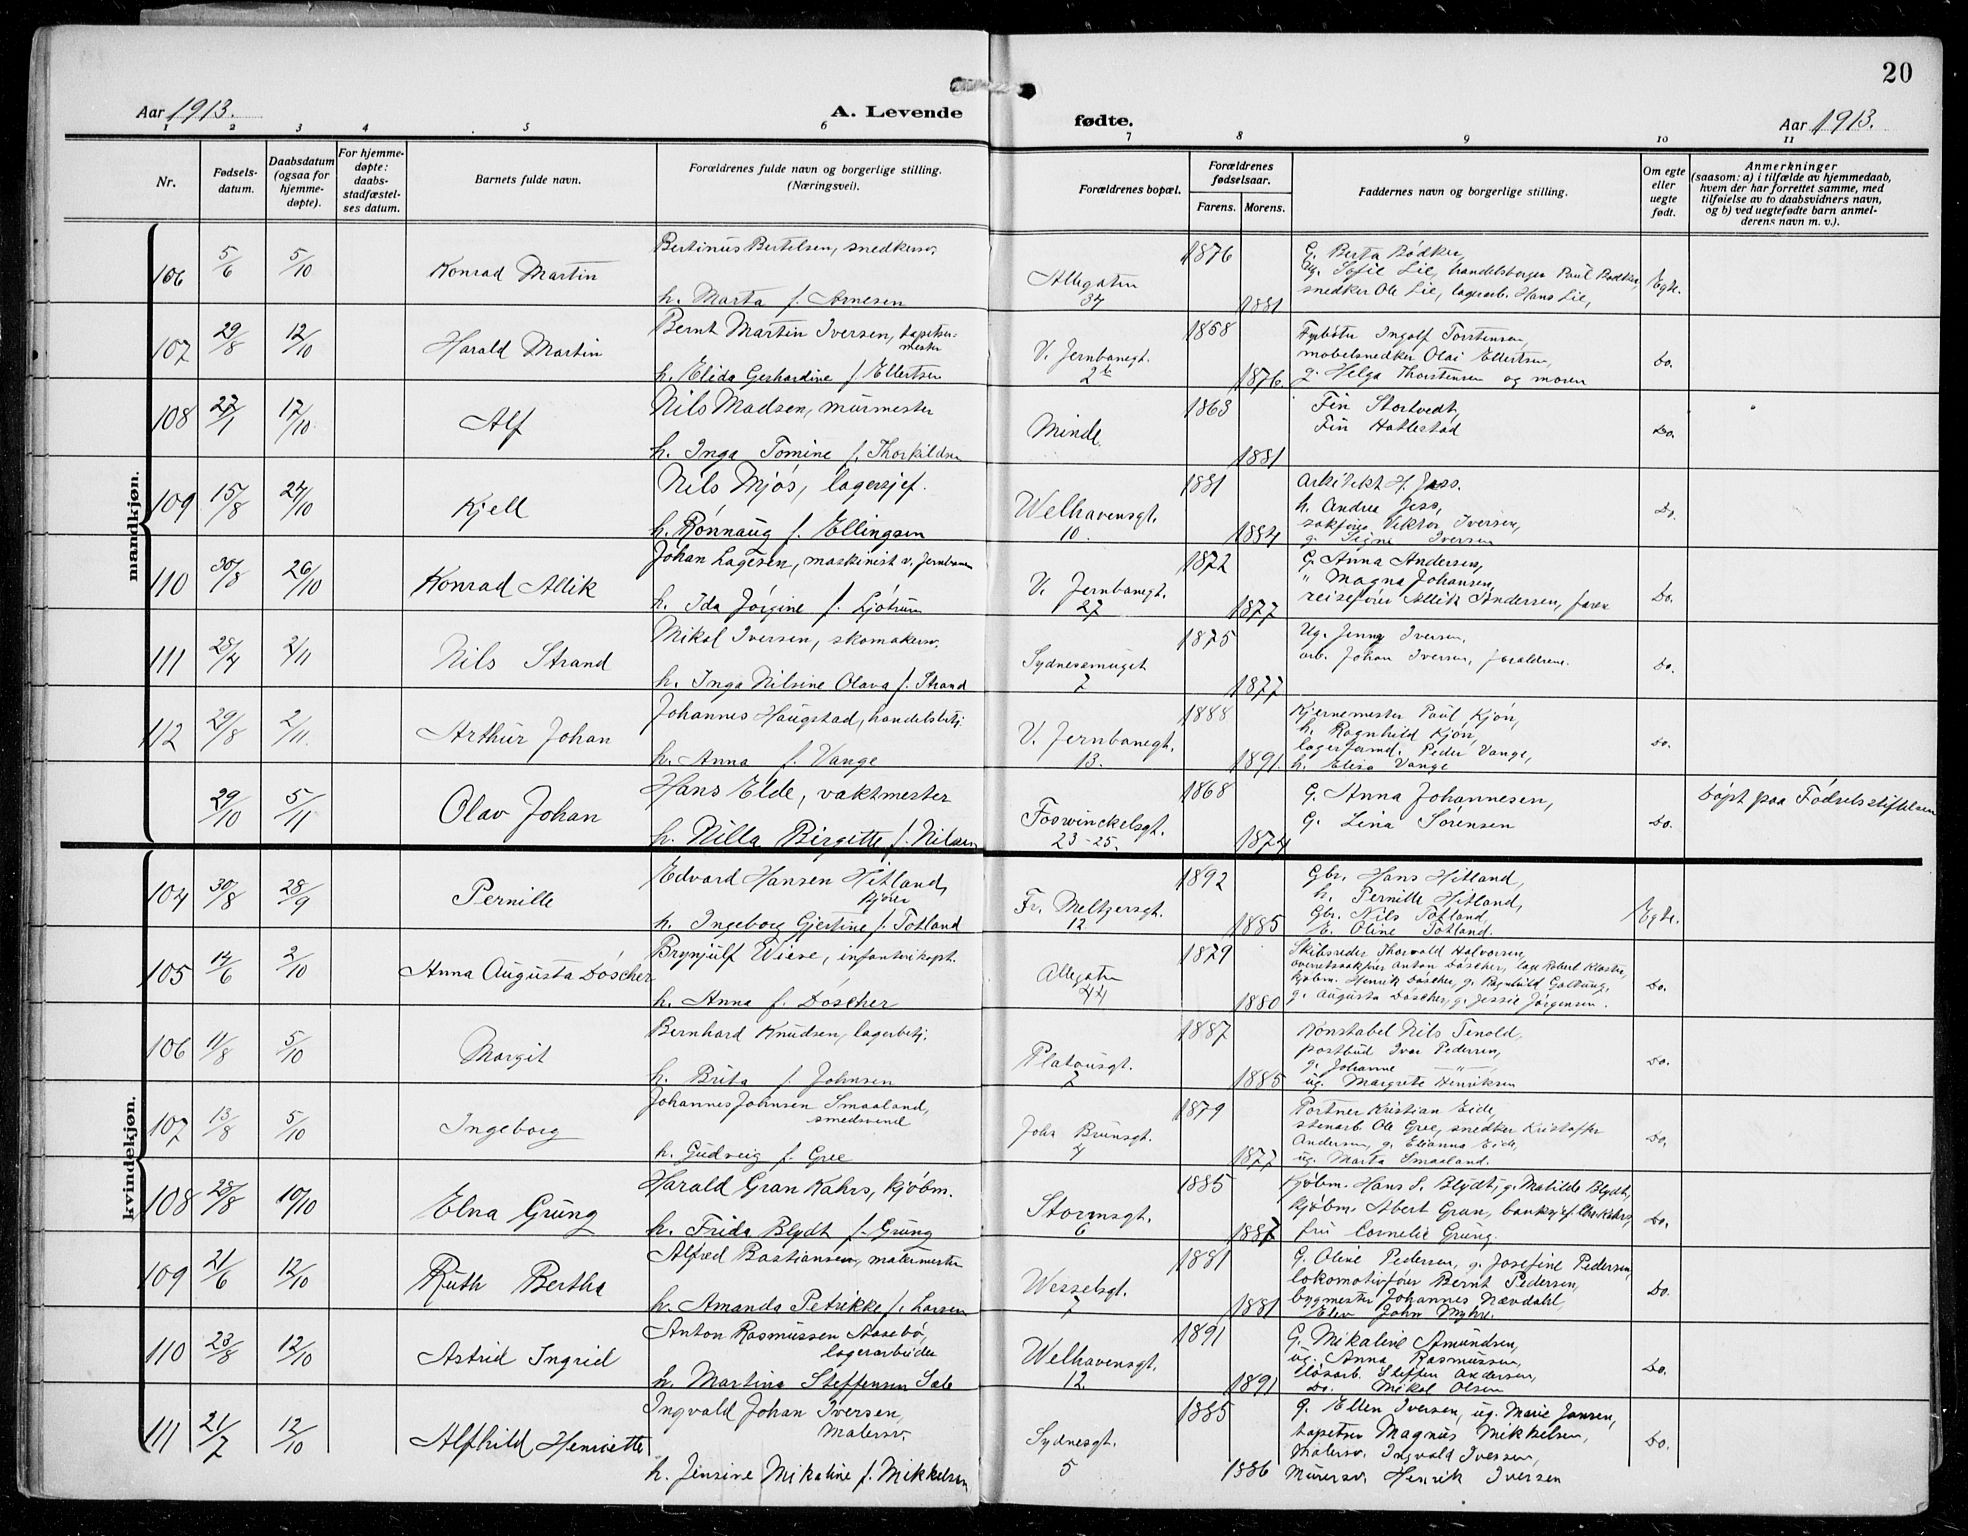 20
Aar 1913.
A. Levende
fødte.
Aar 1913.
1 2 3 4 5 6 7 8 9 10 11
Nr.
Fødsels-
datum.
Daabsdatum
(ogsaa for
hjemme-
døpte).
For hjemme-
døpte:
daabs-
stadfæstel-
ses datum.
Barnets fulde navn.
Forældrenes fulde navn og borgerlige stilling.
(Næringsvei).
Forældrenes bopæl.
Forældrenes
fødselsaar.
Farens. Morens.
Faddernes navn og borgerlige stilling.
Om egte
eller
uegte
født.
Anmerkninger
(saasom: a) i tilfælde av hjemmedaab,
hvem der har forrettet samme, med
tilføielse av to daabsvidners navn,
og b) ved uegtefødte barn anmel-
derens navn m. v.).
mandkjøn.
106 5/6 5/10 Konrad Martin
Bertinus Bertelsen, snedkersv.
h. Marta f. Arnesen
Allegaten
34
1876
1881
G. Berta Bødker,
Ug. Sofie Lie, handelsborger Paul Bødker,
snedker Ole Lie, lagerarb. Hans Lie,
Egte.
107 29/8 12/10 Harald Martin
Bernt Martin Iversen, tapetser-
mester
h. Elida Gerhardine f. Ellertsen
V. Jernbanegt.
2b
1858
1876
Fyrbøter Ingolf Torstensen,
møbelsnedker Olai Ellertsen,
g. Helga Thorstensen og moren
Do.
108 27/1 17/10 Alf
Nils Madsen, murmester
h. Inga Tomine f. Thorkildsen
Minde.
1863
1881
Fin Stortvedt,
Fin Hatlestad
Do.
109 15/8 24/10 Kjell
Nils Mjøs, lagersjef.
h. Rønnaug f. Ellingsen
Welhavensgt.
10.
1881
1884
Arkitekt H. Jess.
h. Andrea Jess,
sakfører Viktor Iversen,
g. Signe Iversen
Do.
110 30/8 26/10 Konrad Allik
Johan Lagesen, maskinist v. Jernbanen
h. Ida Jørgine f. Ljøtrum
V. Jernbanegt.
27
1872
1877
G. Anna Andersen,
" Magna Johansen,
reisefører Allik Andersen, faren
Do.
111 28/4 2/11 Nils Strand
Mikal Iversen, skomakersv.
h. Inga Nilsine Olava f. Strand
Sydnessmuget
7
1875
1877
Ug. Jenny Iversen,
arb. Johan Iversen, forældrene.
Do.
112 29/8 2/11. Arthur Johan
Johannes Haugstad, handelsbetj.
h. Anna f. Vange
V. Jernbanegt.
13.
1888
1891.
Kjernemester Paul Kjøn,
h. Ragnhild Kjøn,
lagerformd. Peder Vange,
h. Elisa Vange
Do.
29/10 5/11 Olav Johan
Hans Elde, vaktmester
h. Nilla Birgitte f. Nilsen
Foswinckelsgt.
23-25.
1868
1874
G. Anna Johannesen,
G. Lina Sørensen
Do.
Døpt paa Fødselsstiftelsen
kvindekjøn.
104 30/8 28/9 Pernille
Edvard Hansen Hitland,
kjører
h. Ingeborg Gjertine f. Totland
Fr. Meltzersgt.
12
1892
1885
Gbr. Hans Hitland,
h. Pernille Hitland,
Gbr. Nils Totland
E. Oline Totland.
Egte.
105 14/6 2/10 Anna Augusta Døscher
Brynjulf Wiese, infanterikapt.
h. Anna f. Døscher
Allegaten
44
1879
1880
Skibsreder Thorvald Halvorsen,
overretssakfører Anton Døscher, læge Robert Kloster,
kjøbm. Henrik Døscher, g. Ragnhild Galtung,
g. Augusta Døscher, g. Jessie Jørgensen.
Do.
106 11/8 5/10 Margit
Bernhard Knudsen, lagerbetj.
h. Brita f. Johnsen
Platousgt.
7
1887
1885
Konstabel Nils Tenold,
postbud Ivar Pedersen,
g. Johanne —"—,
ug. Margrete Henriksen
Do.
107 13/8 5/10 Ingeborg
Johannes Johnsen Smaaland,
smedsvend
h. Gudveig f. Gree
Johs Brunsgt.
4
1879
1877
Portner Kristian Eide,
stenarb. Ole Gree, snedker Kristoffer
Andersen, g. Elianna Eide,
ug. Marta Smaaland.
Do.
108 28/8 10/10 Elna Grung
Harald Gran Kahrs, kjøbm.
h. Frida Blydt f. Grung
Stormsgt.
6
1885
1887
Kjøbm. Hans S. Blydt, g. Matilde Blydt,
kjøbm. Albert Gran, banksjef Chr. Kahrs,
fru Cornelie Grung.
Do.
109 21/6 12/10 Ruth Bertha
Alfred Bastiansen, malermester
h. Amanda Petrikke f. Larsen
Wesselsgt.
7
1881
1881
G. Oline Pedersen, g. Josefine Pedersen,
lokomotivfører Bernt Pedersen,
bygmester Johannes Nævdahl,
Elev John Myhre.
Do.
110 23/8 12/10 Astrid Ingrid
Anton Rasmussen Aasebø,
lagerarbeider
h. Martina Steffensen Sæle
Welhavensgt.
12.
1891
1891
G. Mikaline Amundsen,
ug. Anna Rasmussen,
løsarb. Steffen Andersen,
Do. Mikal Olsen
Do.
111 21/7 12/10 Alfhild Henriette
Ingvald Johan Iversen,
Malersv.
h. Jensine Mikaline f. Mikkelsen
Sydnesgt.
5
1885
1886
g. Ellen Iversen, ug. Marie Jansen,
tapetser Magnus Mikkelsen,
Malersv. Ingvald Iversen,
Murersv. Henrik Iversen
Do.